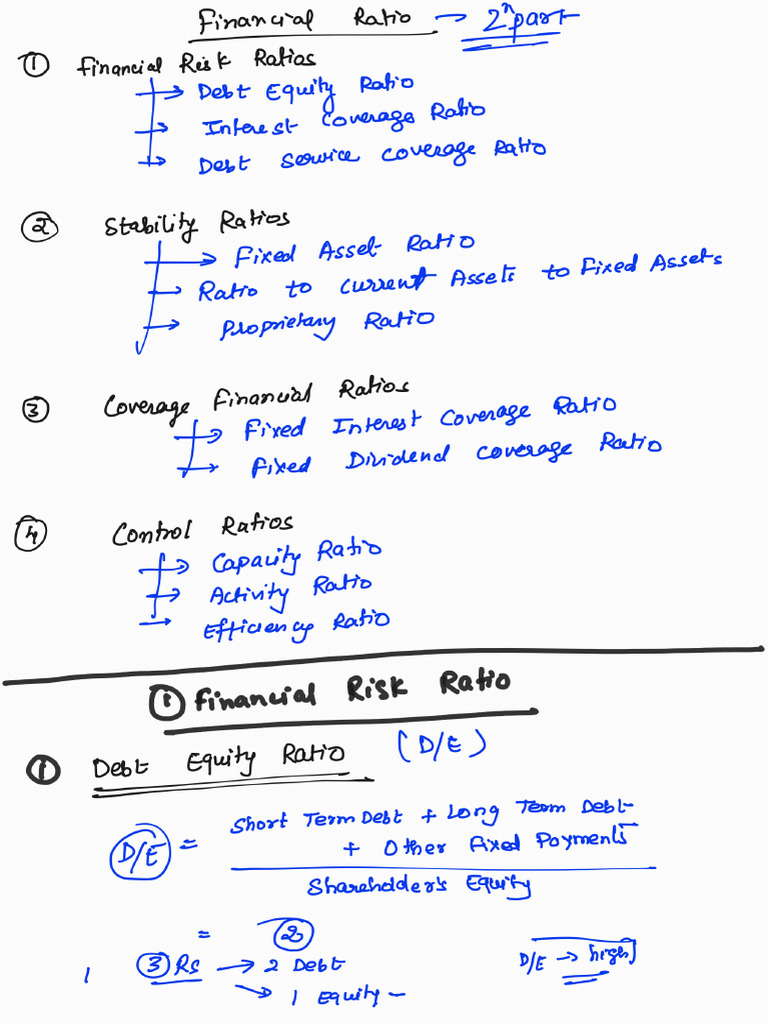 Financial Ratio → 2nd part
① Financial Risk Ratios
→ Debt Equity Ratio
→ Interest Coverage Ratio
→ Debt Service Coverage Ratio
② Stability Ratios
→ Fixed Asset Ratio
→ Ratio to Current Assets to Fixed Assets
→ Proprietary Ratio
③ Coverage Financial Ratios
→ Fixed Interest Coverage Ratio
→ Fixed Dividend Coverage Ratio
④ Control Ratios
→ Capacity Ratio
→ Activity Ratio
→ Efficiency Ratio
① Financial Risk Ratio
① Debt Equity Ratio (D/E)
D/E = Short Term Debt + Long Term Debt
+ Other Fixed Payments
Shareholder's Equity
= ②
1 ③ Rs → 2 Debt
→ 1 Equity –
D/E → high